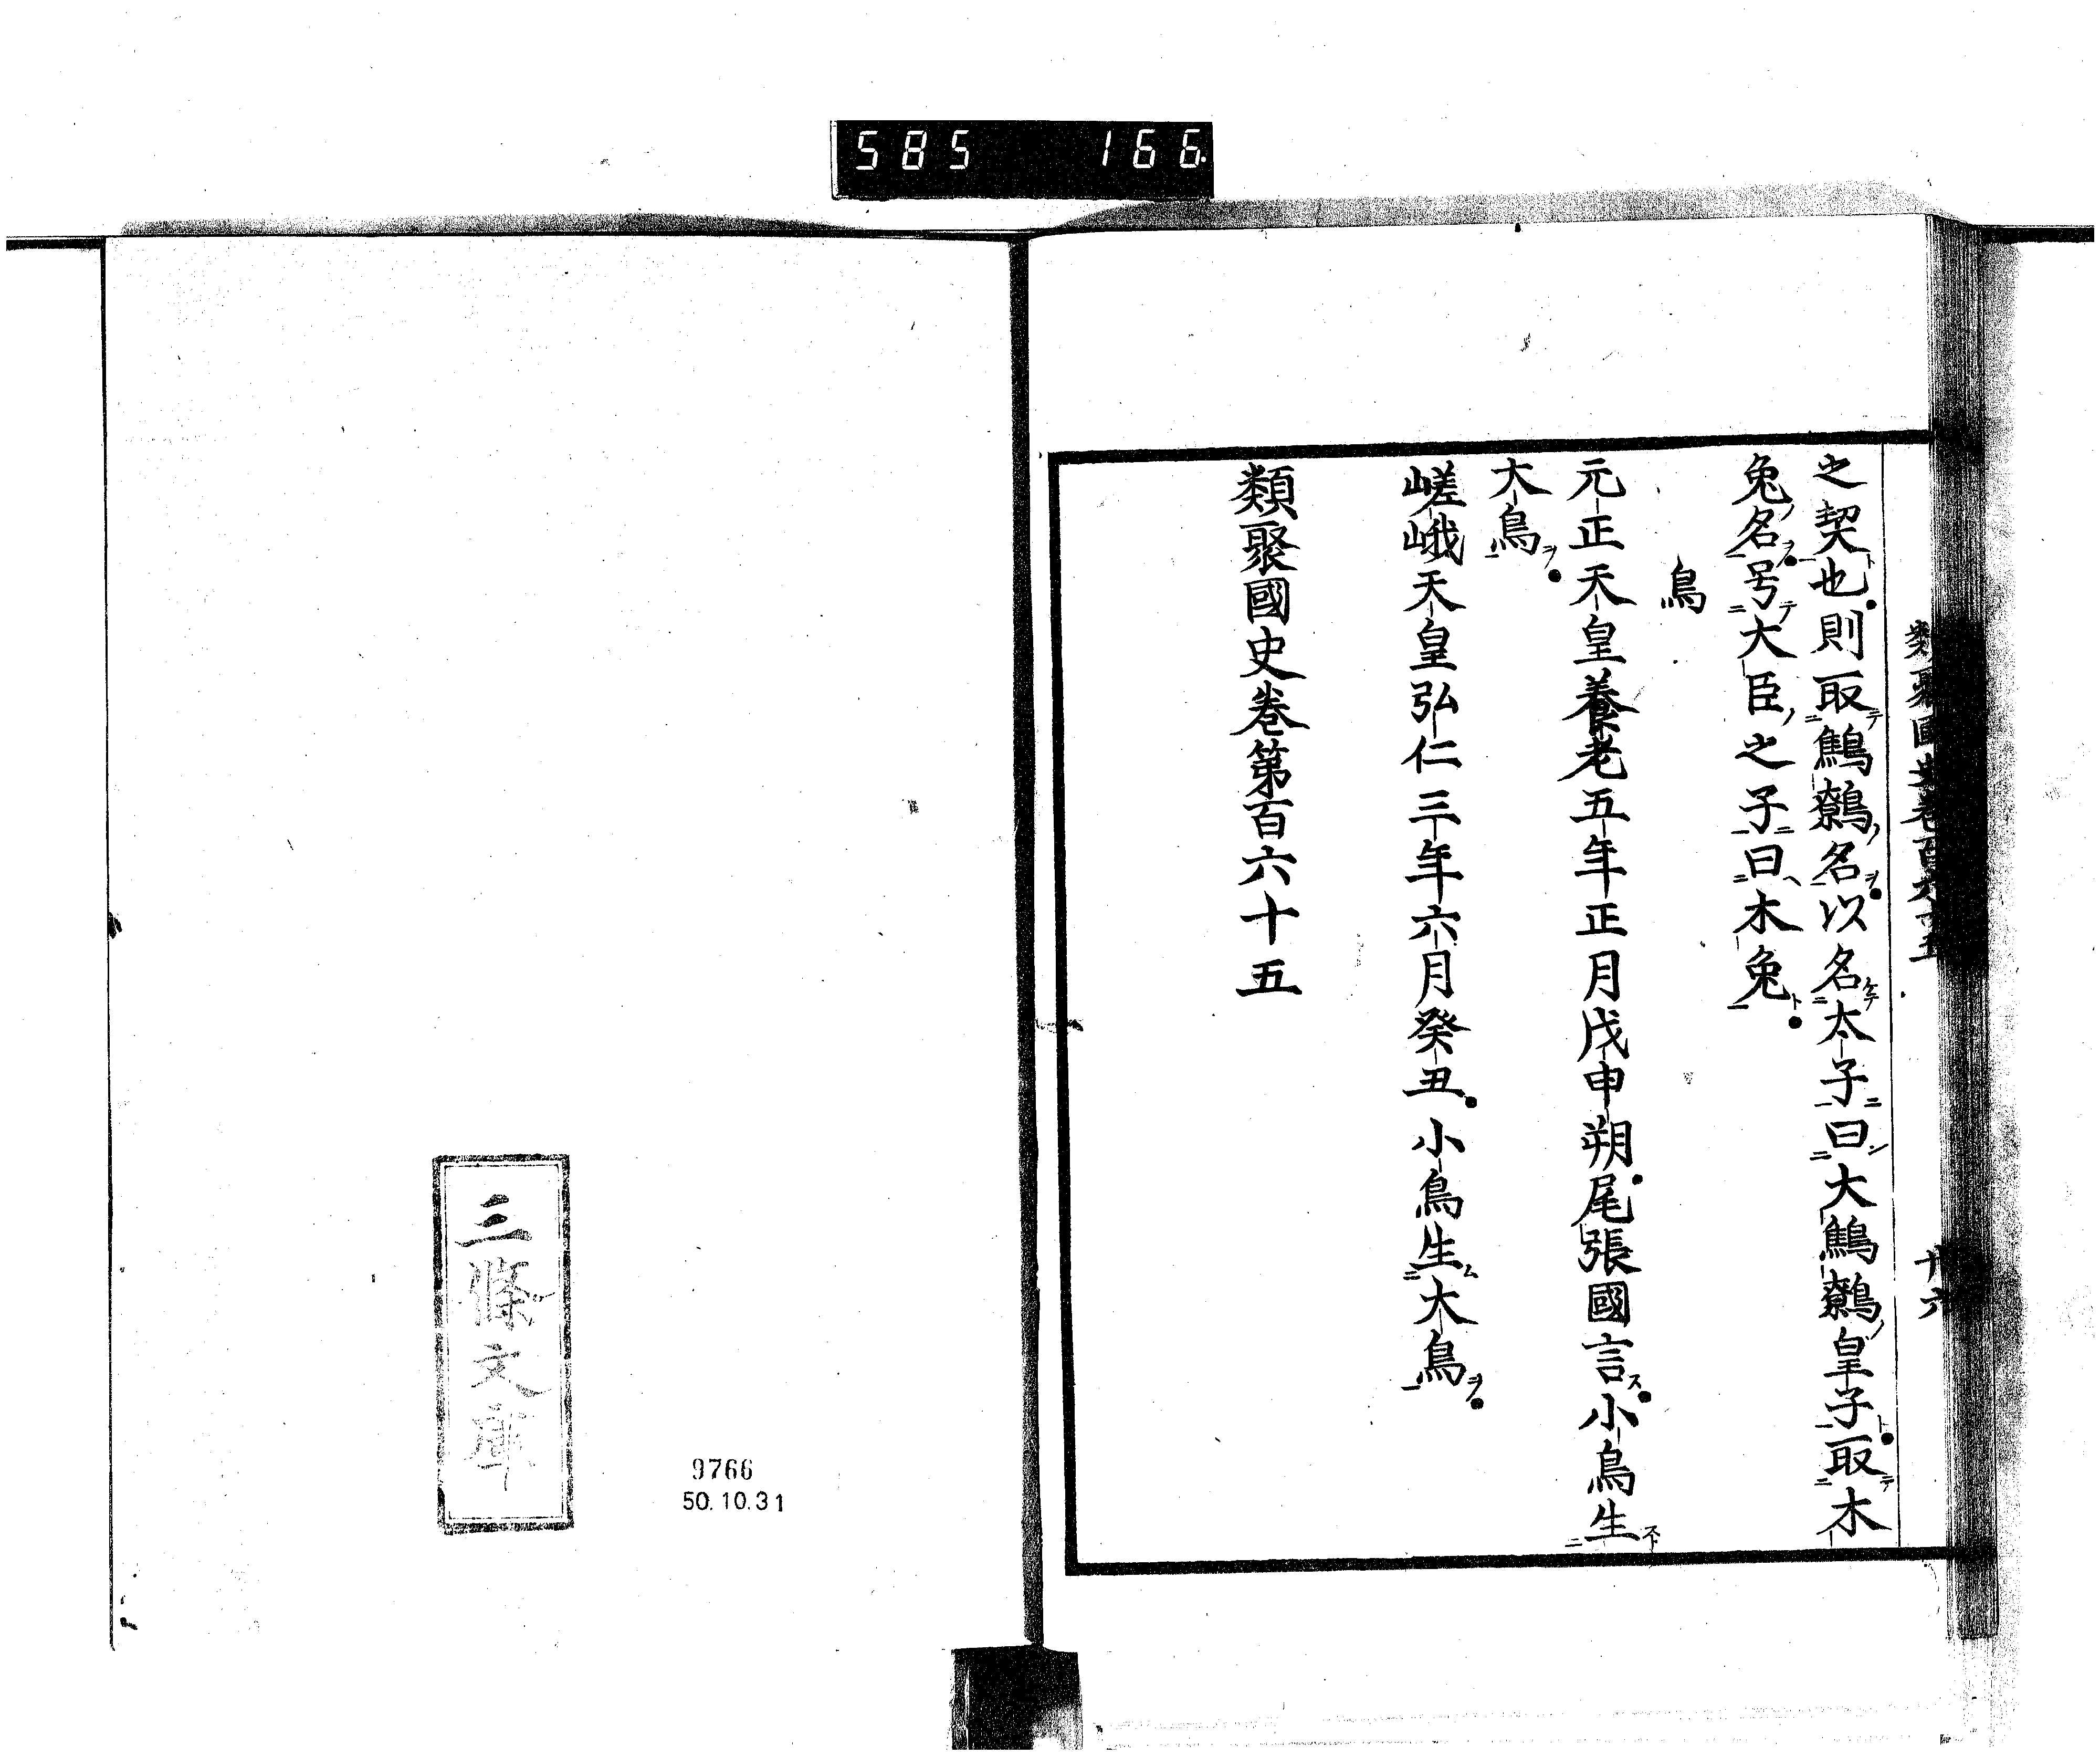 585 166
類聚國史卷百六十五 十六
之契也則取鷦鷯名以名太子曰大鷦鷯皇子取木
兔名号大臣之子曰木兔
鳥
元正天皇養老五年正月戊申朔尾張國言小鳥生
大鳥
嵯峨天皇弘仁三年六月癸丑小鳥生大鳥
類聚國史卷第百六十五
三條文庫
9766
50.10.31